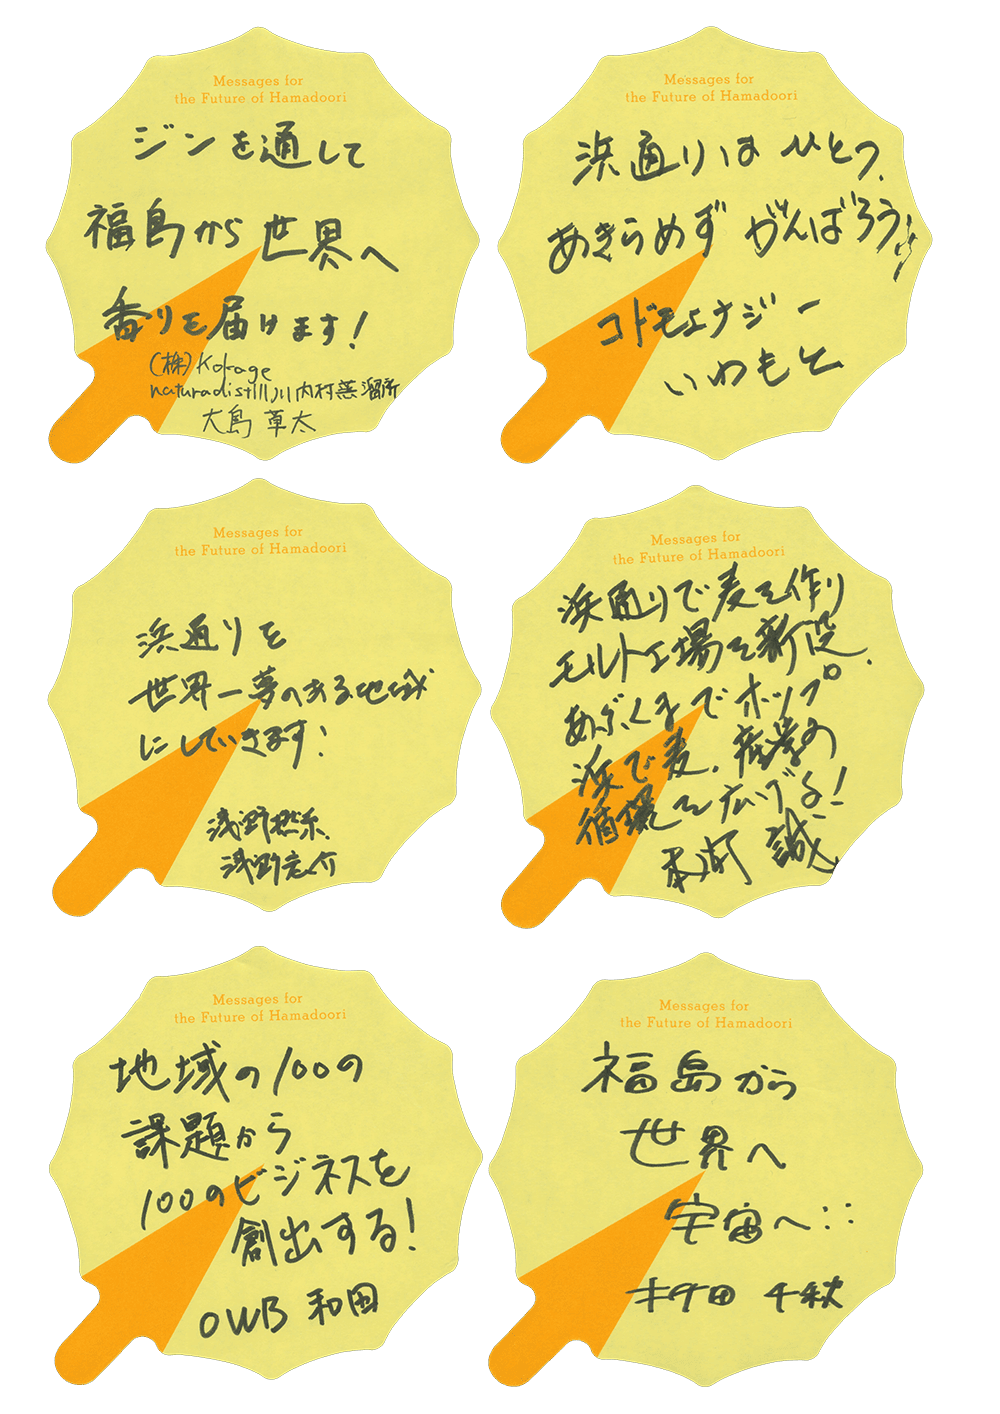 Messages for
the Future of Hamadoori
ジンを通して
福島から世界へ
香りを届けます!
(株)Kokage
naturadistill川内村蒸溜所
大島 草太
Messages for
the Future of Hamadoori
浜通りはひとつ、
あきらめず がんばろう!!
コドモエナジー
いわもと
Messages for
the Future of Hamadoori
浜通りを
世界一夢のある地域
にしていきます!
浅野
浅野宏介
Messages for
the Future of Hamadoori
浜通りで麦を作り
モルト工場を新設、
あぶくまでホップ
浜で麦、産業の
循環を広げる!
本河 誠
Messages for
the Future of Hamadoori
地域の100の
課題から
100のビジネスを
創出する!
OWB 和田
Messages for
the Future of Hamadoori
福島から
世界へ
宇宙へ::
千秋